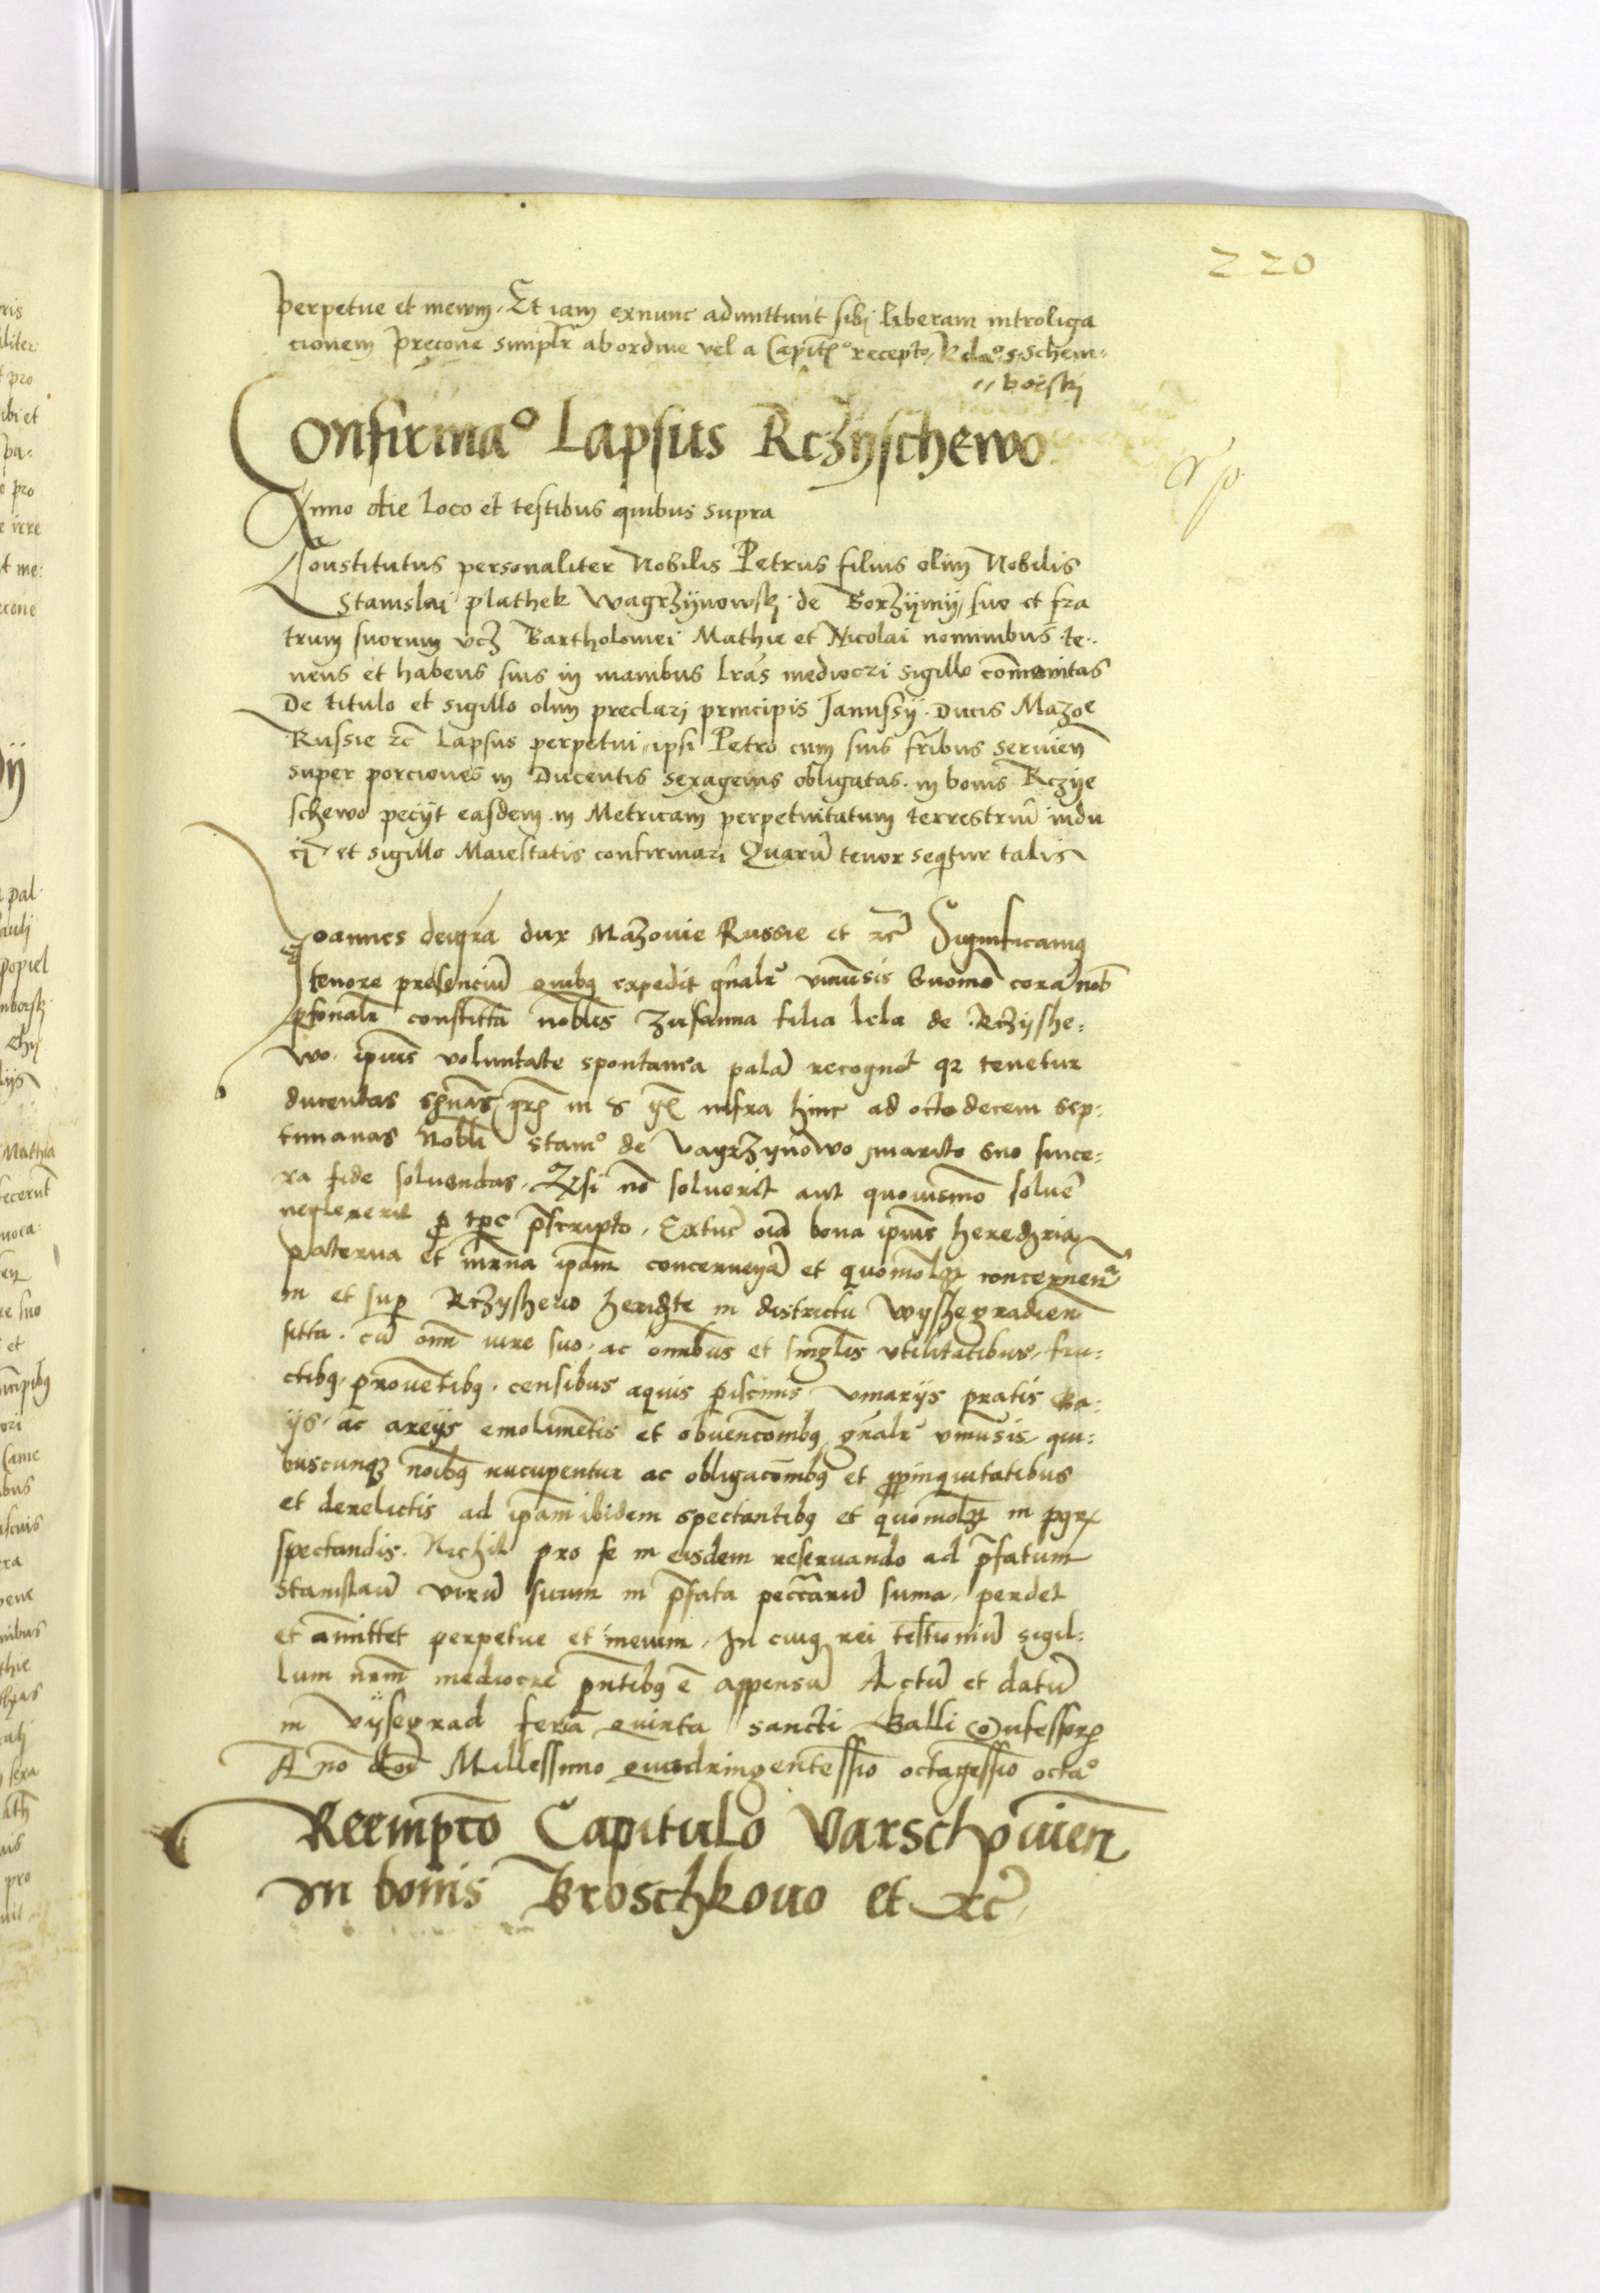 220
perpetue et inewm. Et iam exnunc admittunt sibi liberam introliga
cionem precone simplr ab ordine vel a Capitº recepto, Rclaº s. Schem=
=borski
Confirmaº Lapsus Rczyschewo
Anno die Loco et testibus quibus supra
Constitutus personaliter Nobilis Petrus filius olim Nobilis
Stanislai plathek Wagrzynowsk de Gorzyny, suo et fra
trum suorum vcz Bartholomei Mathie et Nicolai nominibus te..
nens et habens suis in manibus lras mediocri sigillo communitas
De titulo et sigillo olim preclari principis Janussij Ducis Mazoe
Russie rc Lapsus perpetui, ipsi Petro cum suis fribus servien
super porciones in Ducentis sexagenis obligatas in bonis Rczye
schewo peciit easdem in Metricam perpetuitatum terrestriu indu
ci et sigillo Maiestatis confirmari Quaru tenor seqtur talis
Joannes dei gra dux Mazouie Russie et rc Significamus
tenore presenciu quibus expedit gnalr vniuersis Quomo cora nob
psonalr constitta nobilis Zusanna filia lela de Rczyshe=
wo ipius voluntate spontanea pala recognot qz tenetur
ducentas sgenas in infra hinc ad octo decem sep=
timanas Nobli Stanº de Vagrzynowo marito suo since=
ra fide soluendas. Qsi no soluerit aut quouismo solue
neglexerit p tpe pscripto. Extuc oia bona ipius hereditaria
paterna et mrna ipam concerneya et quomolz concernena
in et sup Rczyshewo heridte in districtu Wyshegradien
sitta. cu omi iure suo. ac omibus et singlis vtilitatibus, fru=
ctibus, prouetibus. censibus aquis piscinis vinarijs pratis Ga=
ijs. ac areijs emolimetis et obuencombus gnalr vniusis qui=
buscunqz noibus nucupentur ac obligacombus et ppinquitatibus
et derelictis ad ipam ibidem spectantibus et quomolz in
spectandis. Nichil pro se in eisdem reseruando ad pfatum
Stanislau viru suum in pfata peccaru suma, perdet
et amittet perpetue et inewm. In cuius rei testioniu sigil=
lum nrm mediocre pntibus e appensu Actu et datu
in Vysegrad feria quinta sancti Galli Confessor
Anno doi Millessimo quadringentessio octagessio octaº
Reempco Capitulo Varschouien
In bonis Broschkouo et rc